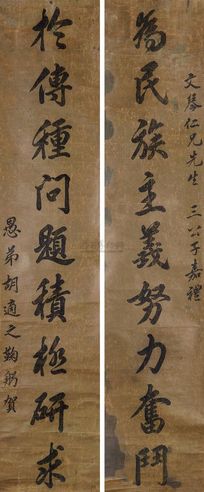 文琴仁兄先生 三公子嘉禮
為民族主義努力奮鬥
於傳種問題積極研求
愚弟胡適之鞠躬賀